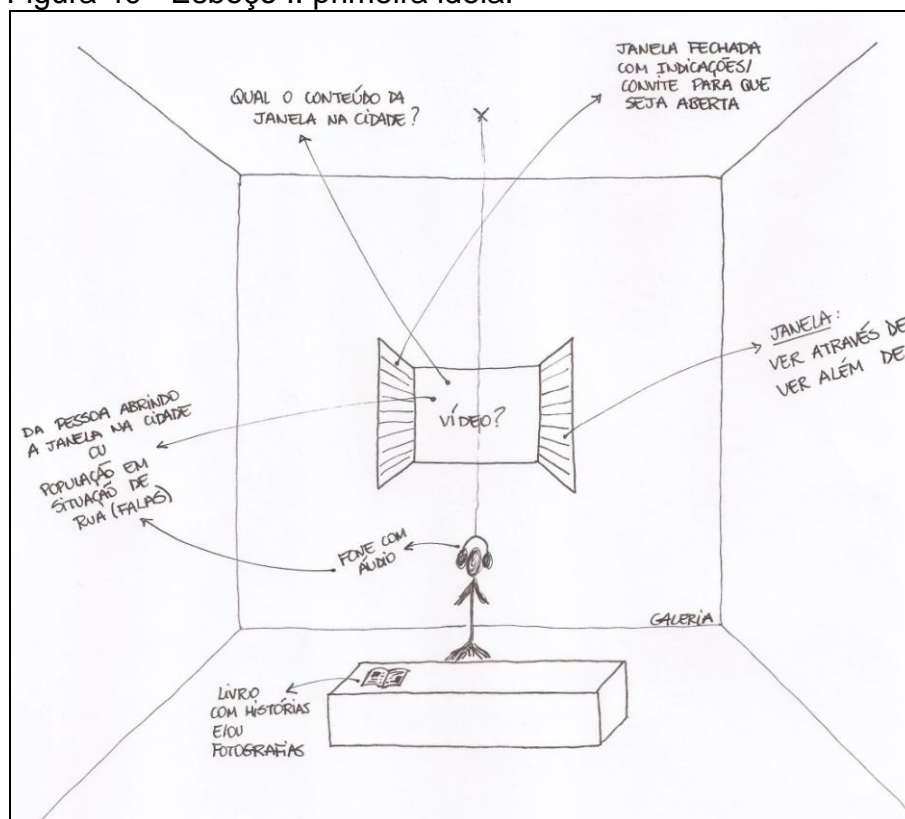 QUAL O CONTEÚDO DA
JANELA NA CIDADE?
JANELA FECHADA
COM INDICAÇÕES/
CONVITE PARA QUE
SEJA ABERTA
JANELA:
VER ATRAVÉS DE
VER ALÉM DE
VÍDEO?
DA PESSOA ABRINDO
A JANELA NA CIDADE
OU
POPULAÇÃO EM
SITUAÇÃO DE
RUA (FALAS)
FONE COM
ÁUDIO
GALERIA
LIVRO
COM HISTÓRIAS
E/OU
FOTOGRAFIAS